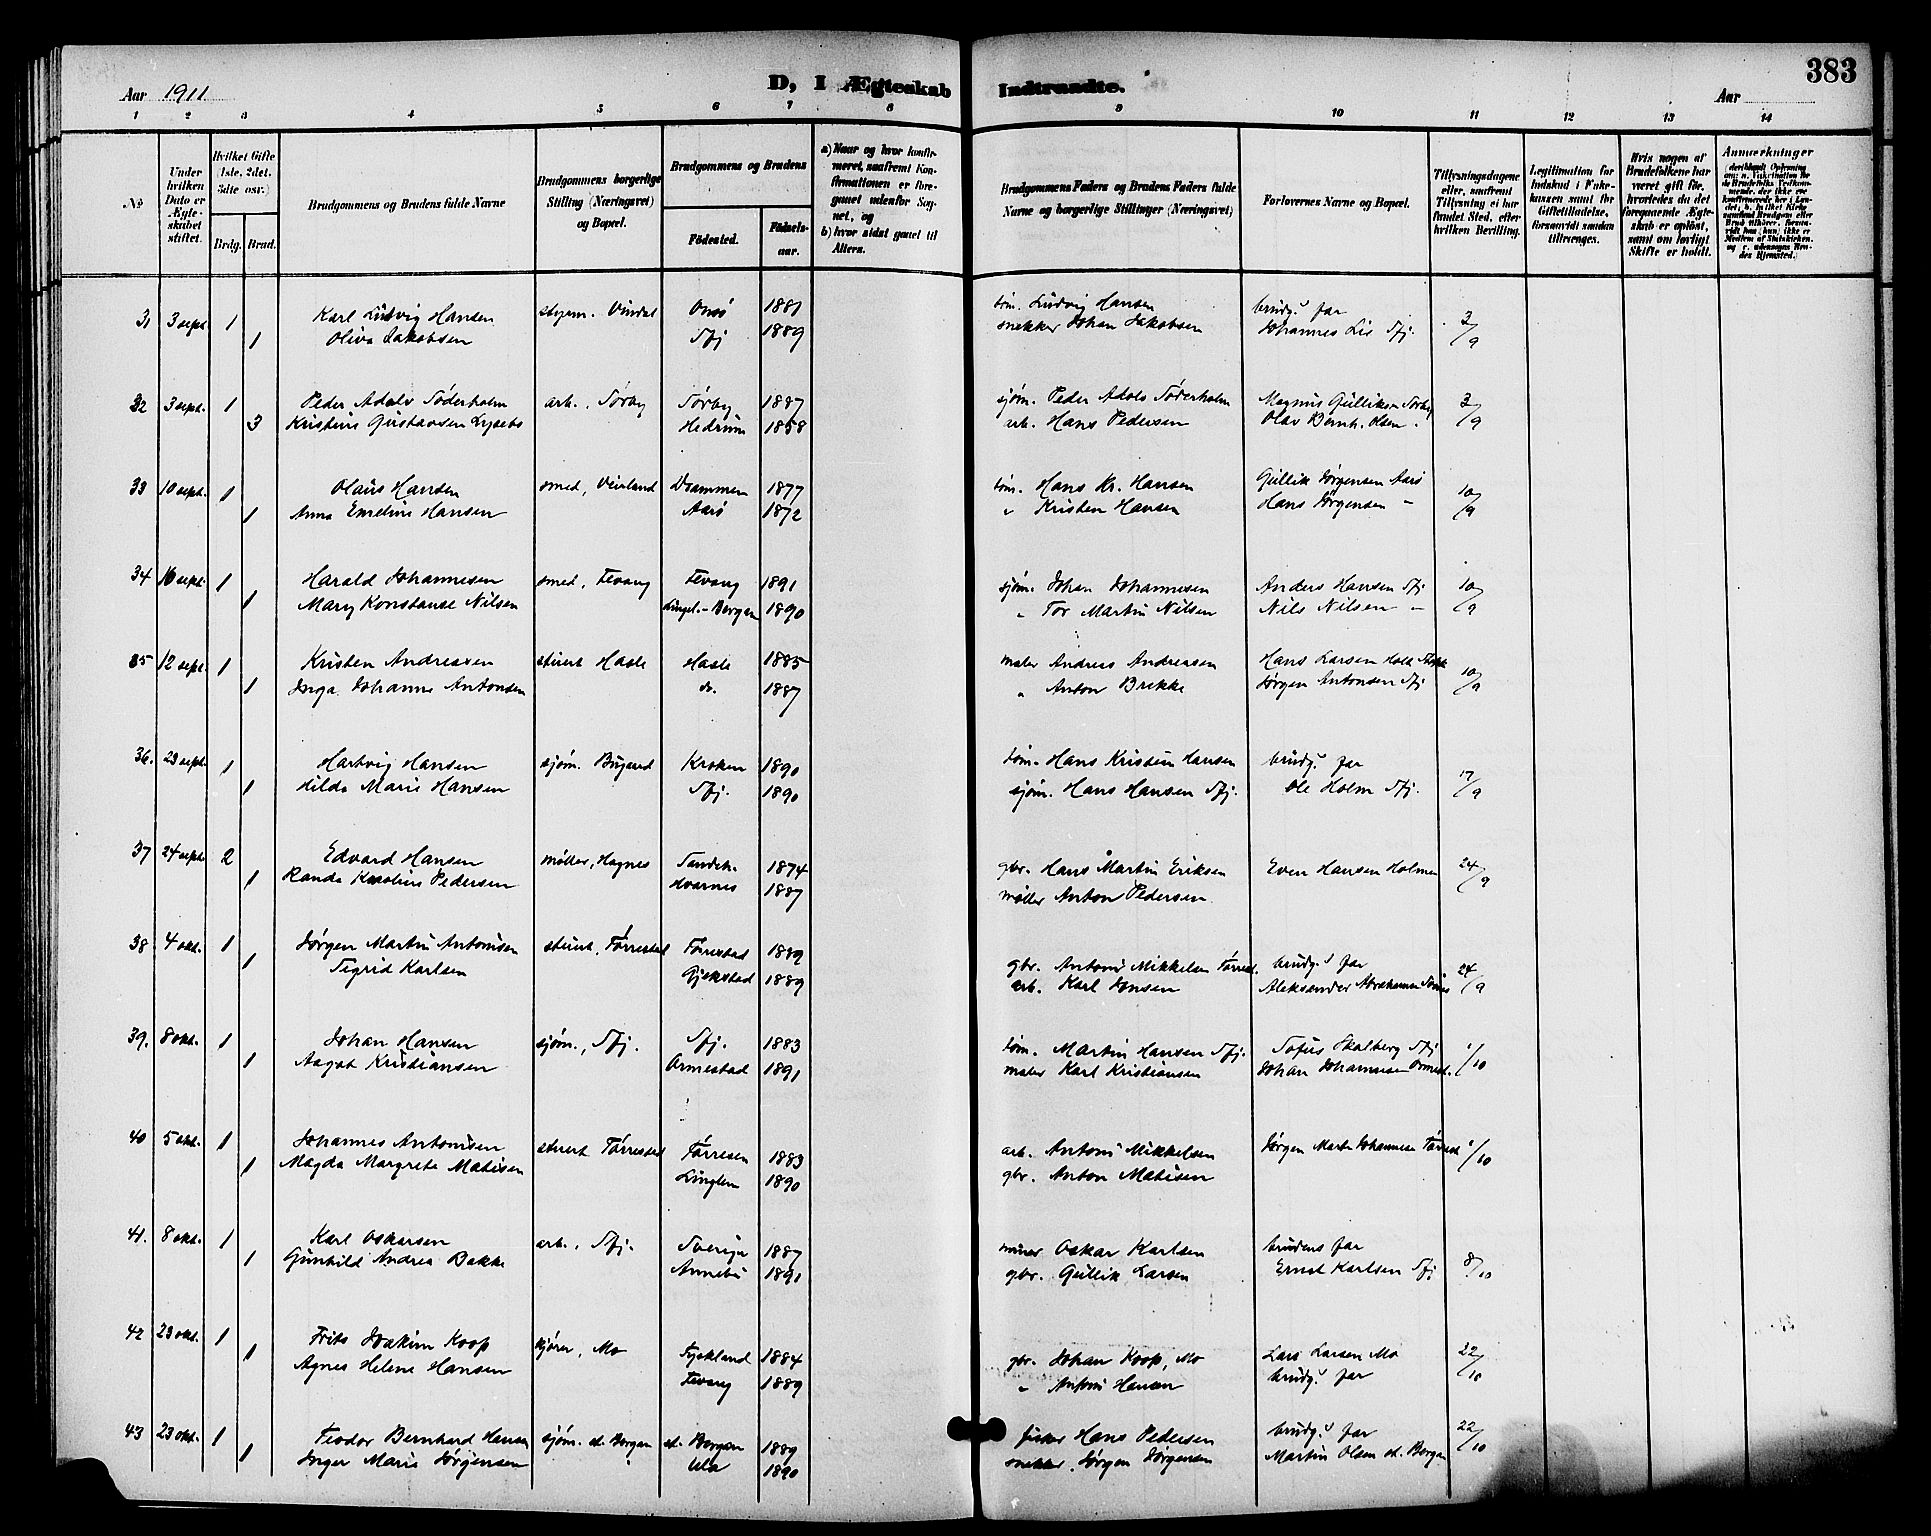 383
Aar 1911
D, I Ægteskab Indtraadte.
Aar
1 2 3 4 5 6 7 8 9 10 11 12 13 14
No
Under hvilken Dato er Ægteskabet stiftet.
Hvilket Gifte (1ste, 2det, 3die osv.)
Brdg. Brud.
Brudgommens og Brudens fulde Navne
Brudgommens borgerlige Stilling (Næringsvei) og Bopæl.
Brudgommens og Brudens
Födested.
Födselsaar.
a) Naar og hvor konfirmeret, saafremt Konfirmationen er foregaaet udenfor Sognet, og
b) hvor sidst gaaet til Alters.
Brudgommens Faders og Brudens Faders fulde Navne og borgerlige Stillinger (Næringsvei)
Forlovernes Navne og Bopæl.
Tillysningsdagene eller, saafremt Tillysning ei har fundet Sted, efter hvilken Bevilling.
Legitimation for Indskud i Enkekassen samt for Giftetilladelse, forsaavidt saadan tiltrænges.
Hvis nogen af Brudefolkene har været gift för, hvorledes da det foregaaende Ægteskab er oplöst, samt om lovligt Skifte er holdt.
Anmærkninger
31 3 sept. 1 Karl Ludvig Hansen Vindal Onsö 1881 töm. Ludvig Hansen brudg.s far 3/9
1 Oliva Jakobsen Sfj 1889 snekker Johan Jakobsen Johannes Lie Sfj.
32 3 sept. 1 Peder Adolv Söderholm arb., Sörby Sörby 1887 sjöm. Peder Adolv Söderholm Magnus Gulliksen Sörby 3/9
3 Kristine Gustavsen Lysebo Hedrum 1858 arb. Hans Pedersen Olav Bernh. Olsen
33 10 sept. 1 Olaus Hansen smed, Veirland Drammen 1877 töm. Hans Kr. Hansen Gullik Jörgensen Aarö 10/9
1 Anna Emeline Hansen Aarö 1872 " Kristen Hansen Hans Jörgensen -
34 16 sept. 1 Harald Johannesen smed, Fevang Fevang 1891 sjöm. Johan Johannesen Anders Hansen Sfj 10/9
1 Mary Konstanse Nilsen Lingel.-Bergan 1890 " Tor Martin Nilsen Nils Nilsen -
35 12 sept. 1 Kristen Andreasen stuert Hasle Hasle 1885 maler Andreas Andreasen Hans Larsen Holt 10/9
1 Inga Johanne Antonsen do. 1887 " Anton Brekke Jörgen Antonsen Sfj
36. 23 sept. 1 Hartvig Hansen sjöm. Bugaard Kroken 1890 töm. Hans Kristian Hansen brudg.s far 17/9
1 Hilda Marie Hansen Sfj. 1890 sjöm. Hans Hansen Sfj. Ole Holm Sfj.
37 24 sept. 2 Edvard Hansen møller, Hagnes Sandeh. 1874 gbr. Hans Martin Eriksen Even Hansen Holmen 24/9
1 Randa Karoline Pedersen Hvarnes 1887 møller Anton Pedersen
38 4 okt. 1 Jørgen Martin Antonisen stuert, Førrestad Førrestad 1889 gbr. Antoni Mikkelsen Førrest. brudg.s far 24/9
1 Sigrid Karlsen Gjekstad 1889 arb. Karl Jonsen Aleksander Abrahamsen
39. 8 okt. 1 Johan Hansen sjöm., Sfj. Sfj. 1883 töm. Martin Hansen Sfj. Sofus Skalberg Sfj 1/10
1 Aagot Kristiansen Ormestad 1891 maler Karl Kristiansen Johan Johannesen Ormest.
40 5 okt. 1 Johannes Antonisen stuert Førrestad Førresen 1883 arb. Antoni Mikkelsen Jørgen Martin Johannesen Førrest 1/10
1 Magda Margrete Matisen Lingelem 1890 gbr. Anton Matisen
41. 8 okt. 1 Karl Oskarsen arb., Sfj. Sverige 1887 murer Oskar Karlsen brudens far 8/10
1 Gunhild Andrea Bakke Annebu 1891 gbr. Gullik Larsen Ernst Karlsen Sfj
42 23 okt. 1 Frits Joakim Koop kjörer, Mo Tyskland 1884 gbr. Johan Koop, Mo Lars Larsen Mo 22/10
1 Agnes Helene Hansen Fevang 1889 " Antoni Hansen brudg.s far
43 23 okt. 1 Teodor Bernhard Hansen sjöm. st. Bergan st. Bergan 1889 fisker Hans Pedersen brudg.s far 22/10
1 Inger Marie Jörgensen Ula 1890 snekker Jörgen Jörgensen Martin Olsen st. Bergan